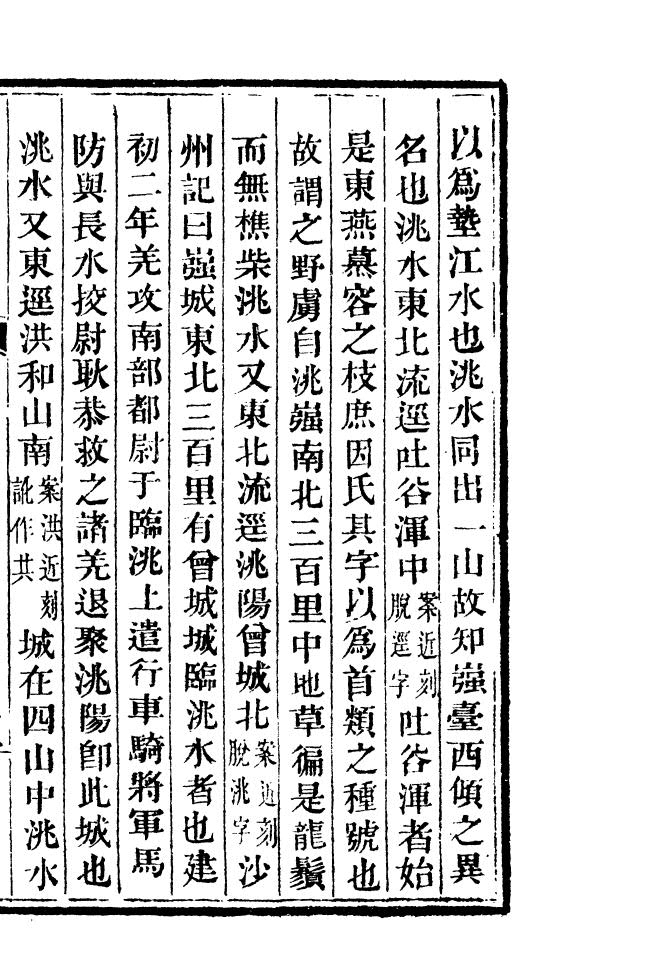 以爲墊江水也洮水同出一山故知嵹臺西傾之異
名也洮水東北流逕吐谷渾中案近刻脫逕字吐谷渾者始
是東燕慕容之枝庶因氏其字以爲首類之種號也
故謂之野虜自洮嵹南北三百里中地草徧是龍鬚
而無樵柴洮水又東北流逕洮陽曾城北案近刻脫洮字沙
州記曰嵹城東北三百里有曾城城臨洮水者也建
初二年羌攻南部都尉于臨洮上遣行車騎將軍馬
防與長水挍尉耿恭救之諸羌退聚洮陽卽此城也
洮水又東逕洪和山南案洪近刻訛作共城在四山中洮水